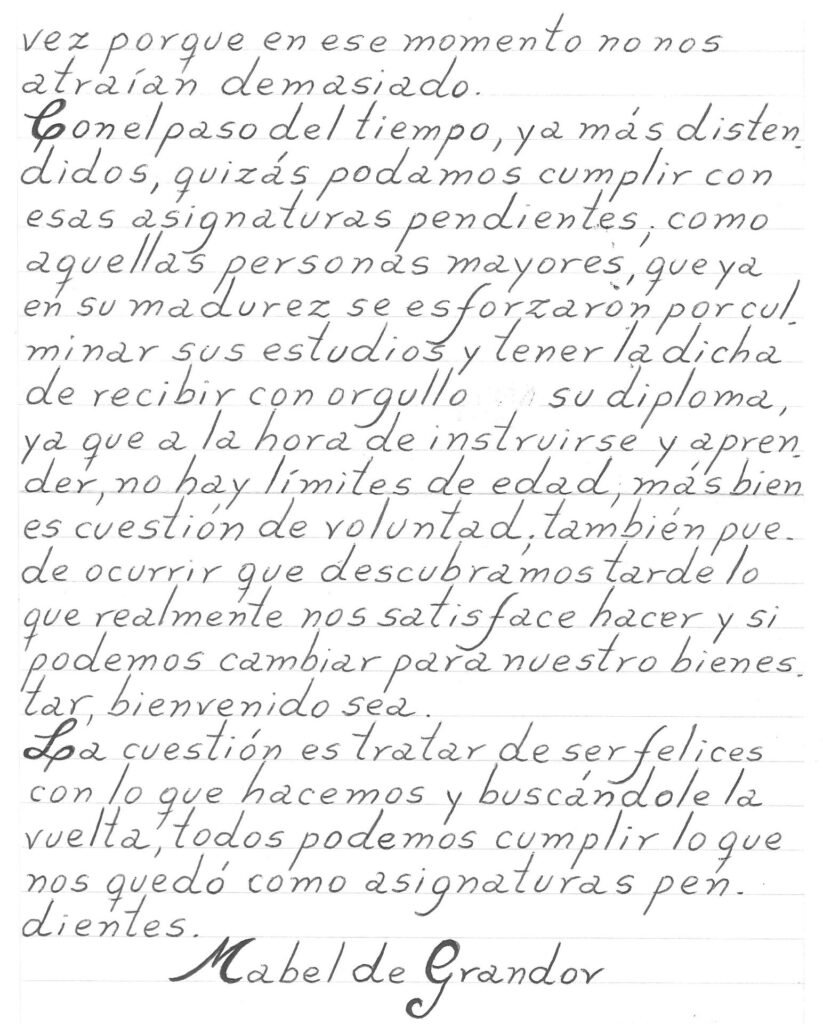 vez porque en ese momento no nos
atraían demasiado.
Con el paso del tiempo, ya más disten-
didos, quizás podamos cumplir con
esas asignaturas pendientes, como
aquellas personas mayores, que ya
en su madurez se esforzarón por cul-
minar sus estudios y tener la dicha
de recibir con orgullo su diploma,
ya que a la hora de instruirse y apren-
der, no hay límites de edad, más bien
es cuestión de voluntad, también pue-
de ocurrir que descubramos tarde lo
que realmente nos satisface hacer y si
podemos cambiar para nuestro bienes-
tar, bienvenido sea.
La cuestión es tratar de ser felices
con lo que hacemos y buscándole la
vuelta, todos podemos cumplir lo que
nos quedó como asignaturas pen-
dientes.
Mabel de Grandov